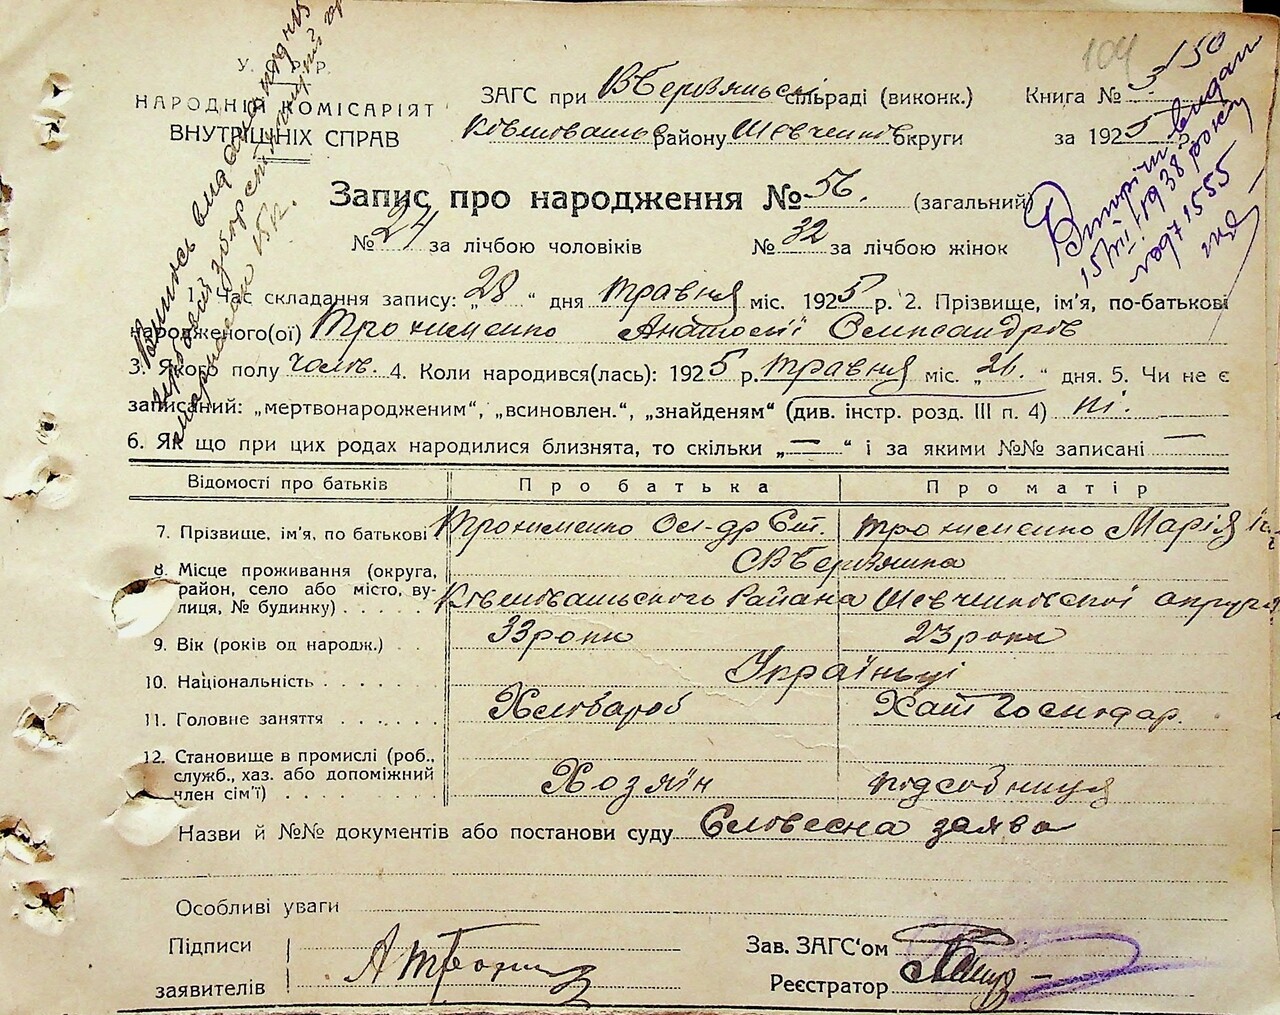 У.С.Р.Р.
НАРОДНІЙ КОМІСАРІЯТ
ВНУТРІШНІХ СПРАВ
ЗАГС при В Березянськ сільраді (виконк.)
Ківшовацьк району Шевченків округи
104
Книга № 3/50
за 1925 р.
Запис про народження № 56. (загальний)
№ 24 за лічбою чоловіків № 32 за лічбою жінок
1. Час складання запису: „28“ дня травня міс. 1925 р. 2. Прізвище, ім'я, по-батькові
народженого(ої) Трохименко Анатолії Олександрів
3. Якого полу чолов. 4. Коли народився(лась): 1925 р. травня міс. „21.“ дня. 5. Чи не є
записаний: „мертвонародженим“, „всиновлен.“, „знайденям“ (див. інстр. розд. III п. 4) ні.
6. Як що при цих родах народилися близнята, то скільки „—“ і за якими №№ записані —
Відомості про батьків Про батька Про матір
7. Прізвище, ім'я, по батькові Трохименко Ол-др Єт. Трохименко Марія
8. Місце проживання (округа, район, село або місто, вулиця, № будинку) . . . . . С В Березянка
Ківшовацьского Района Шевченковскої округи
9. Вік (років од народж.) . . 33 роки 23 роки
10. Національність . . . . . . Українці
11. Головне заняття . . . . . . Хлібароб Хат Господар.
12. Становище в промислі (роб., служб., хаз. або допоміжний член сім'ї) . . . . . . Хозяїн підсобниця
Назви й №№ документів або постанови суду Словесна заява
Особливі уваги
Підписи
заявителів
Зав. ЗАГС'ом
Реєстратор
15/VII 1938 року
1555